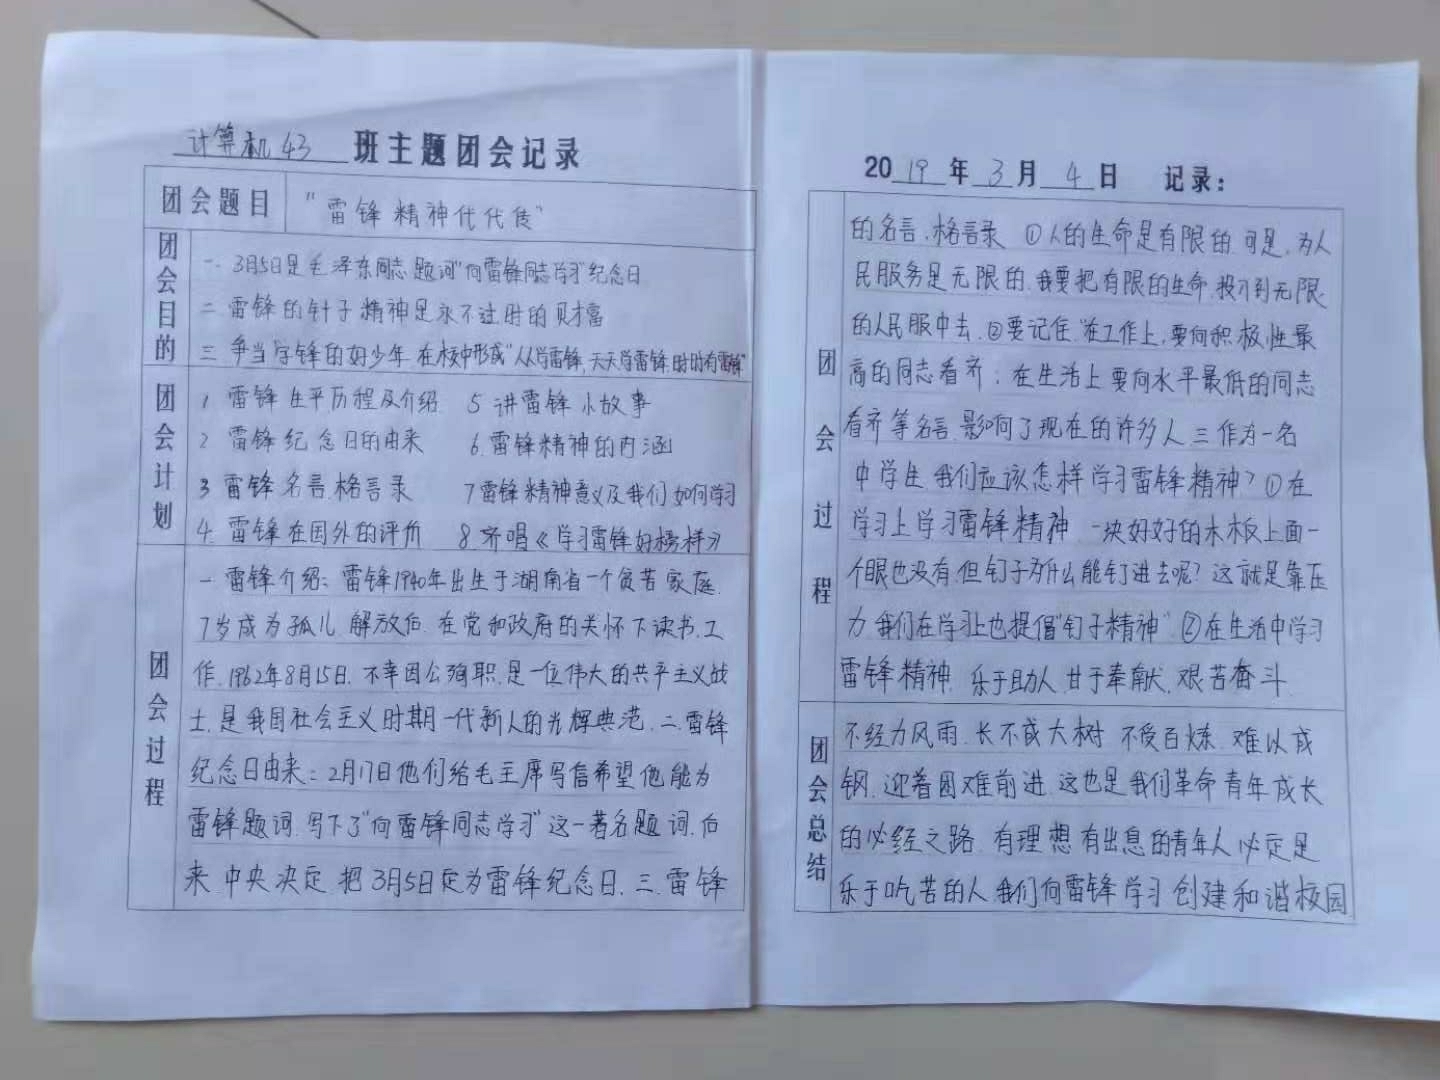 计算机43 班主题团会记录
团会题目
"雷锋精神代代传"
团会目的
一. 3月5日是毛泽东同志题词"向雷锋同志学习"纪念日
二 雷锋的针子精神是永不过时的财富
三 争当学锋的好少年.在校中形成"人人学雷锋,天天学雷锋.时时有雷锋"
团会计划
1 雷锋生平历程及介绍 5 讲雷锋小故事
2 雷锋纪念日的由来 6.雷锋精神的内涵
3 雷锋名言.格言录 7雷锋精神意义及我们如何学习
4. 雷锋在国外的评价 8.齐唱《学习雷锋好榜样》
团会过程
一 雷锋介绍: 雷锋1940年出生于湖南省一个贫苦家庭.
7岁成为孤儿.解放后.在党和政府的关怀下读书.工
作.1962年8月15日.不幸因公殉职.是一位伟大的共产主义战
士.是我国社会主义时期一代新人的光辉典范.二.雷锋
纪念日由来: 2月17日他们给毛主席写信希望他能为
雷锋题词.写下了"向雷锋同志学习"这一著名题词.后
来.中央决定.把3月5日定为雷锋纪念日.三.雷锋
2019年3月4日 记录:
团会过程
的名言.格言录 ①人的生命是有限的.可是.为人
民服务是无限的.我要把有限的生命.投入到无限
的人民服中去.②要记住"在工作上,要向积极性最
高的同志看齐;在生活上要向水平最低的同志
看齐等名言.影响了现在的许多人.三.作为一名
中学生.我们应该怎样学习雷锋精神?①在
学习上学习雷锋精神 一块好好的木板上面一
个眼也没有.但钉子为什么能钉进去呢?这就是靠压
力.我们在学习上也提倡"钉子精神".②在生活中学习
雷锋精神.乐于助人.甘于奉献.艰苦奋斗.
团会总结
不经力风雨.长不成大树 不受百炼.难以成
钢.迎着困难前进.这也是我们革命青年成长
的必经之路.有理想有出息的青年人必定是
乐于吃苦的人.我们向雷锋学习.创建和谐校园